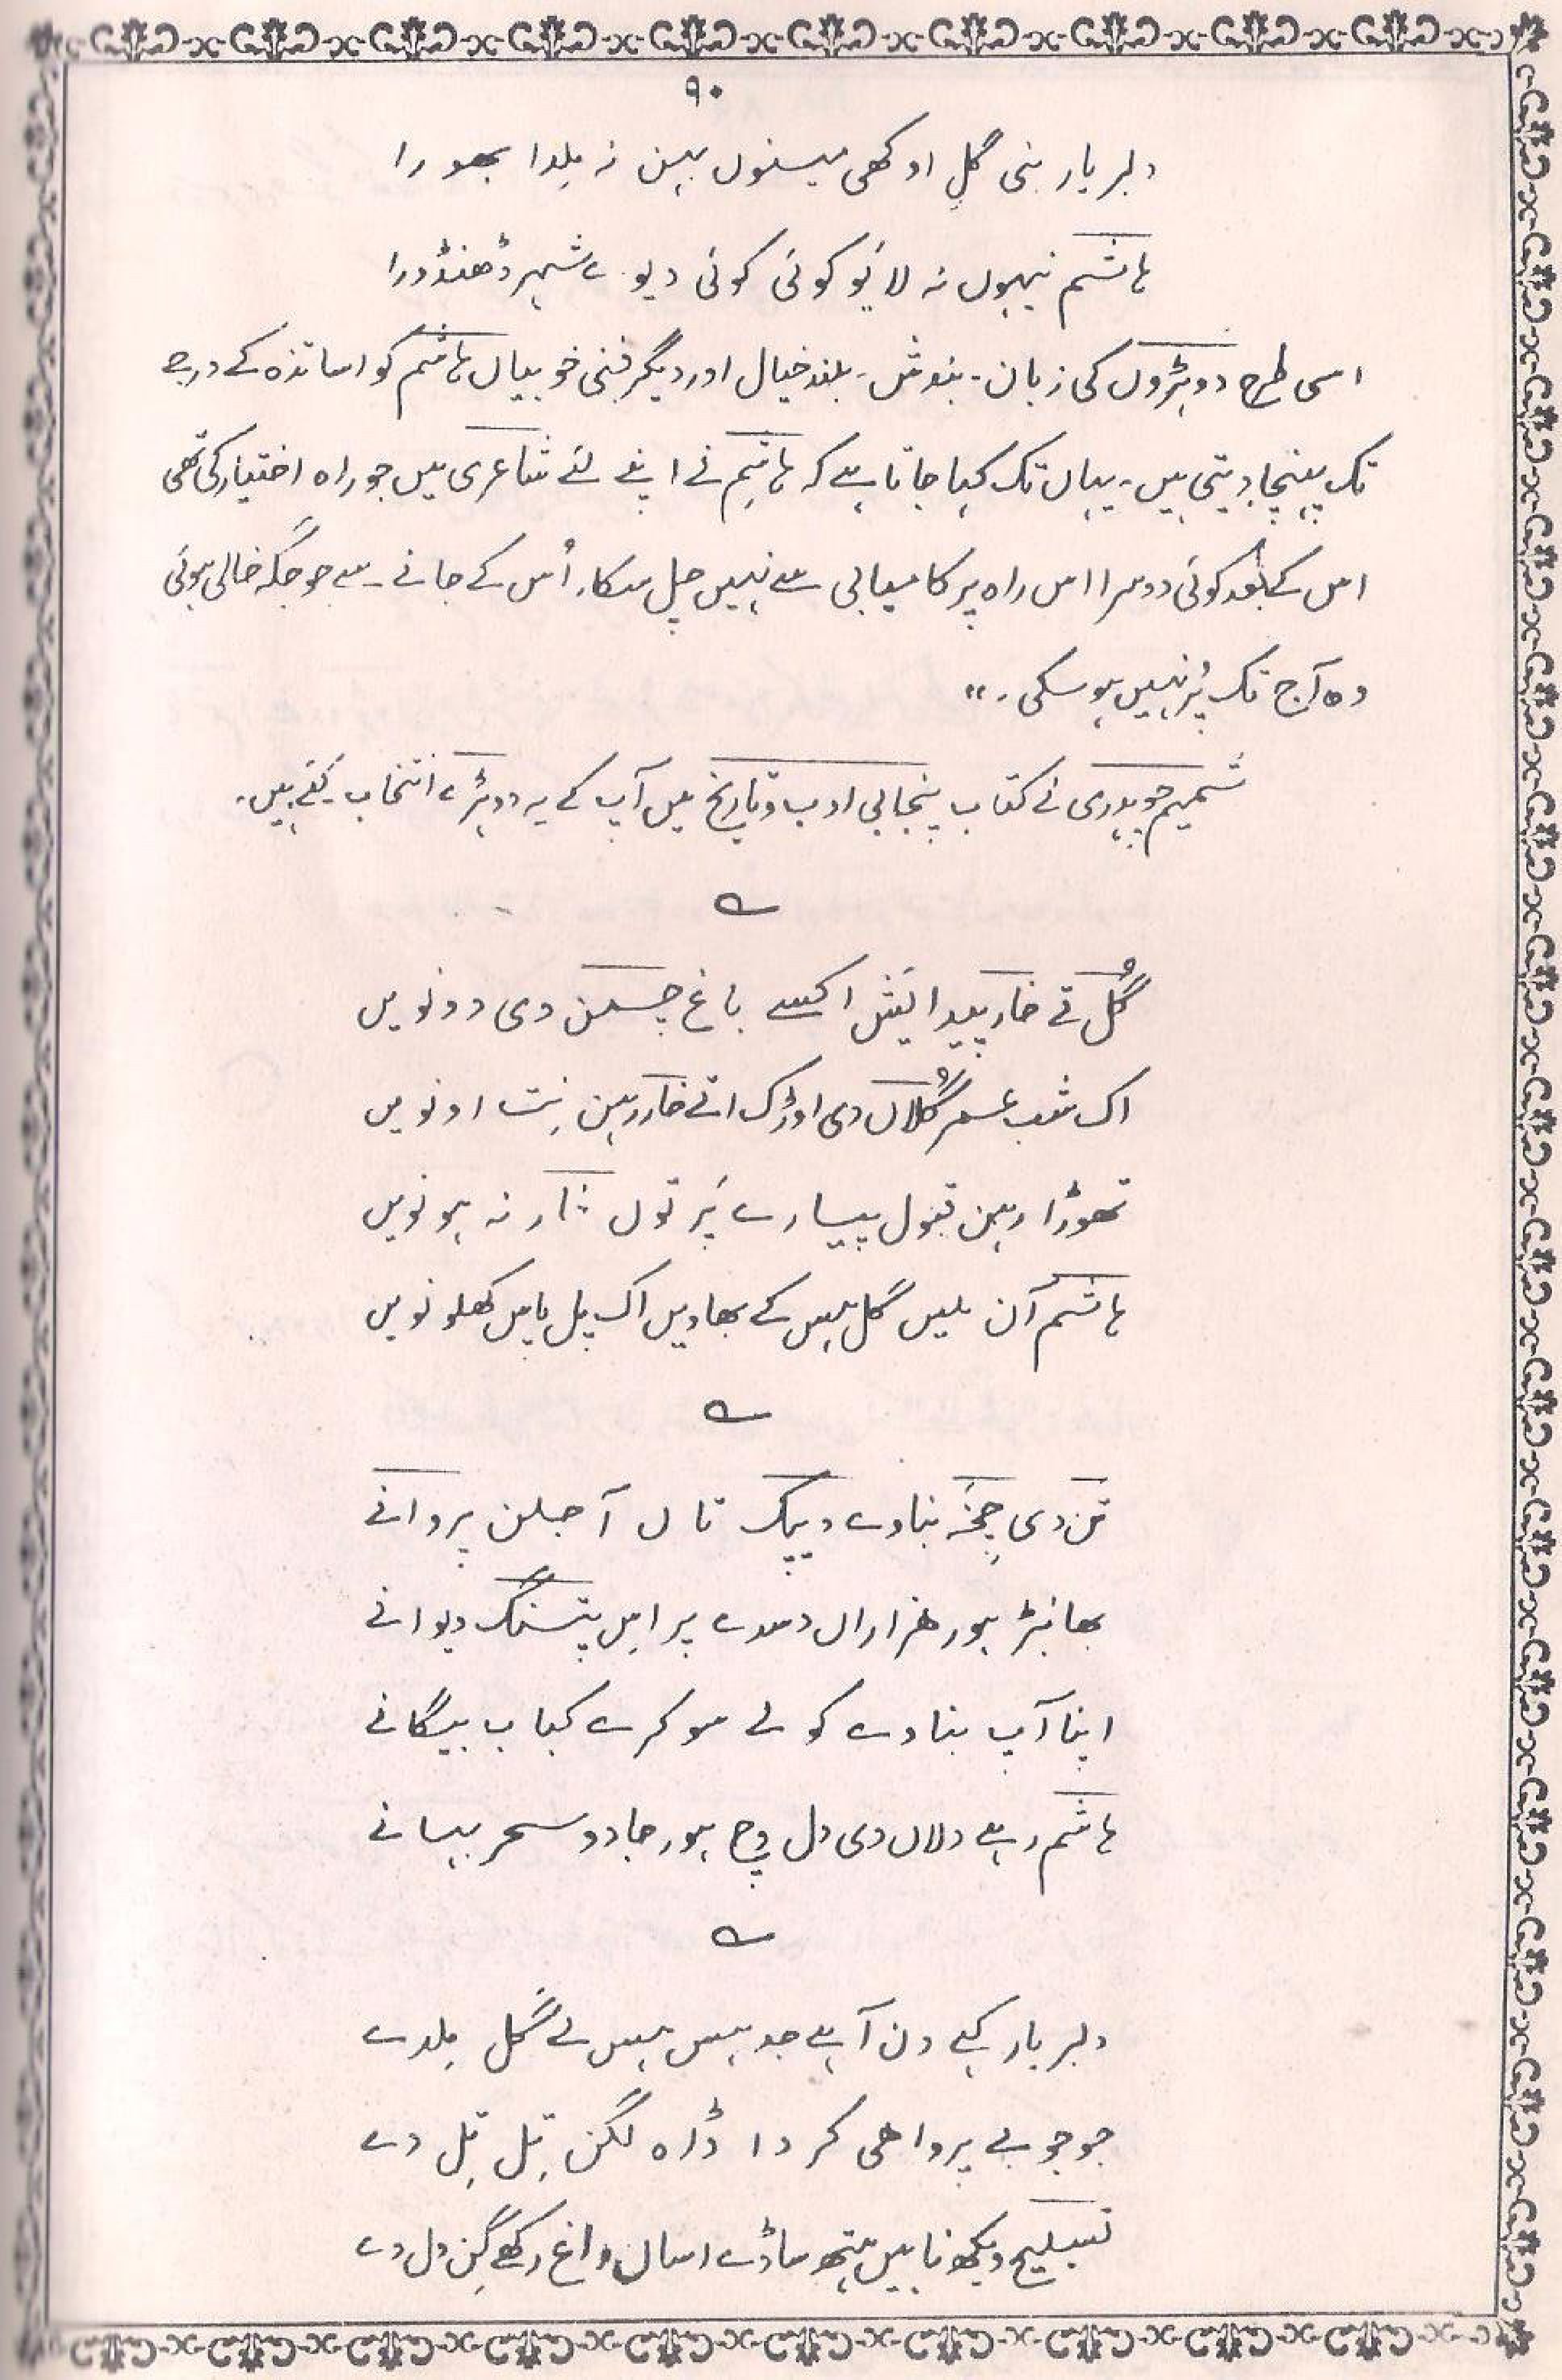 ۹۰
دلبر یار بنی گل اوکھی مینوں بہن نہ مِلدا بھورا
ہاشم نیہوں نہ لائیو کوئی کوئی دیوے شہر ڈھنڈورا
اسی طرح دوہڑوں کی زبان۔ بندش۔ بلند خیال اور دیگر فنی خوبیاں ہاشم کو اساتذہ کے درجے
تک پہنچا دیتی ہیں۔ یہاں تک کہا جاتا ہے کہ ہاشم نے اپنے لئے شاعری میں جو راہ اختیار کی تھی
اس کے بعد کوئی دوسرا اس راہ پر کامیابی سے نہیں چل سکا۔ اُس کے جانے سے جو جگہ خالی ہوئی
وہ آج تک پُر نہیں ہو سکی۔"
شمیم چوہدری نے کتاب پنجابی ادب و تاریخ میں آپ کے یہ دوہڑے انتخاب کئے ہیں۔
؎
گُل تے خار پیدائش اکسے باغ چمن دی دونویں
اک شب عمر گُلاں دی اوڑک اتے خار رہن نِت اونویں
تھوڑا رہن قبول پیارے پَر توں خار نہ ہونویں
ہاشم آن ملیں گل ہس کے بھاویں اک پل پاس کھلونویں
؎
تن دی چِخہ بناوے دیپک تاں آ جلن پروانے
بھانبڑ ہور ہزاراں دسدے پر اس پتنگ دیوانے
اپنا آپ بناوے کولے سو کرے کباب بیگانے
ہاشم رہے دلاں دی دل وِچ ہور جادو سحر بہانے
؎
دلبر یار کیہے دن آہے جد ہس ہس لے گل مِلدے
جو جو بے پرواہی کردا ڈاہ لگن تِل تِل دے
تسبیح دیکھ ناہیں ہتھ ساڈے اساں داغ رکھے گِن دل دے